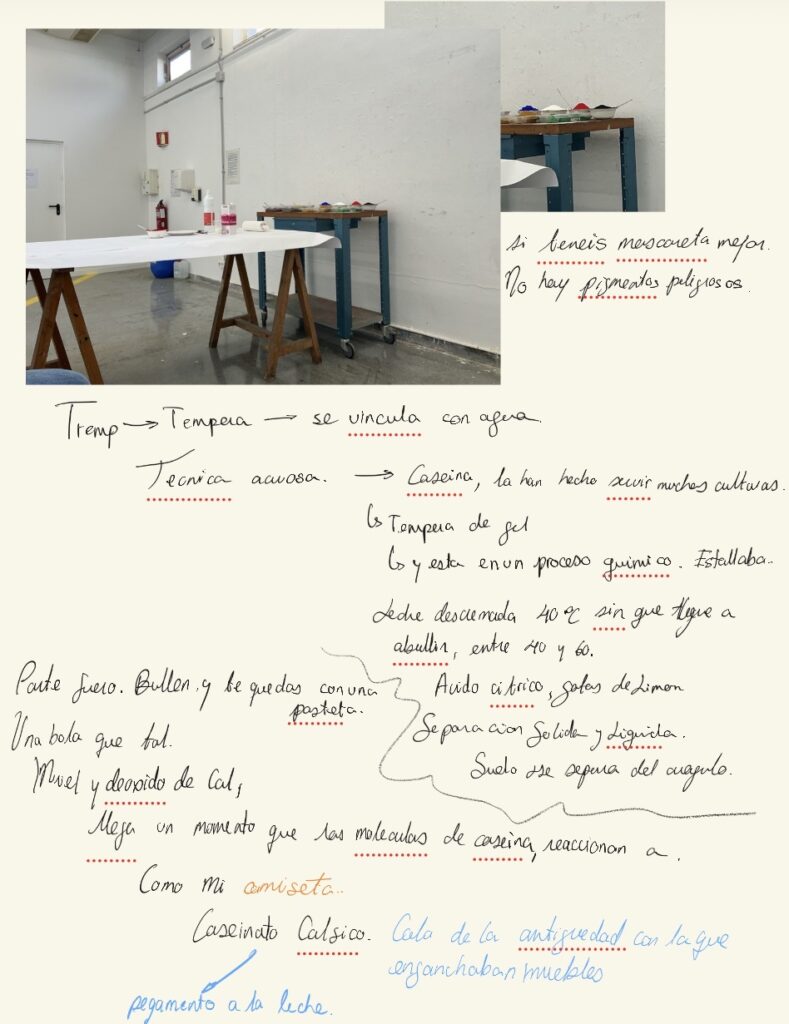 si teneis mascareta mejor.
No hay pigmentos peligrosos.
Tremp → Tempera → se vincula con agua.
Tecnica acuosa. → Caseina, la han hecho servir muchas culturas.
↳ Tempera de gel
↳ y esta en un proceso quimico. Estallaba..
Leche descremada 40ºC sin que llegue a
abullir, entre 40 y 60.
Acido citrico, gotas de Limon
Separacion Solida y Liquida.
Suelo se separa del cuagulo.
Parte suero. Bullen, y te quedas con una
pasteta.
Una bola que tal.
y deoxido de Cal,
llega un momento que las moleculas de caseina, reaccionan a.
Como mi camiseta..
Caseinato Calsico. Cola de la antiguedad con la que
enganchaban muebles
pegamento a la leche.